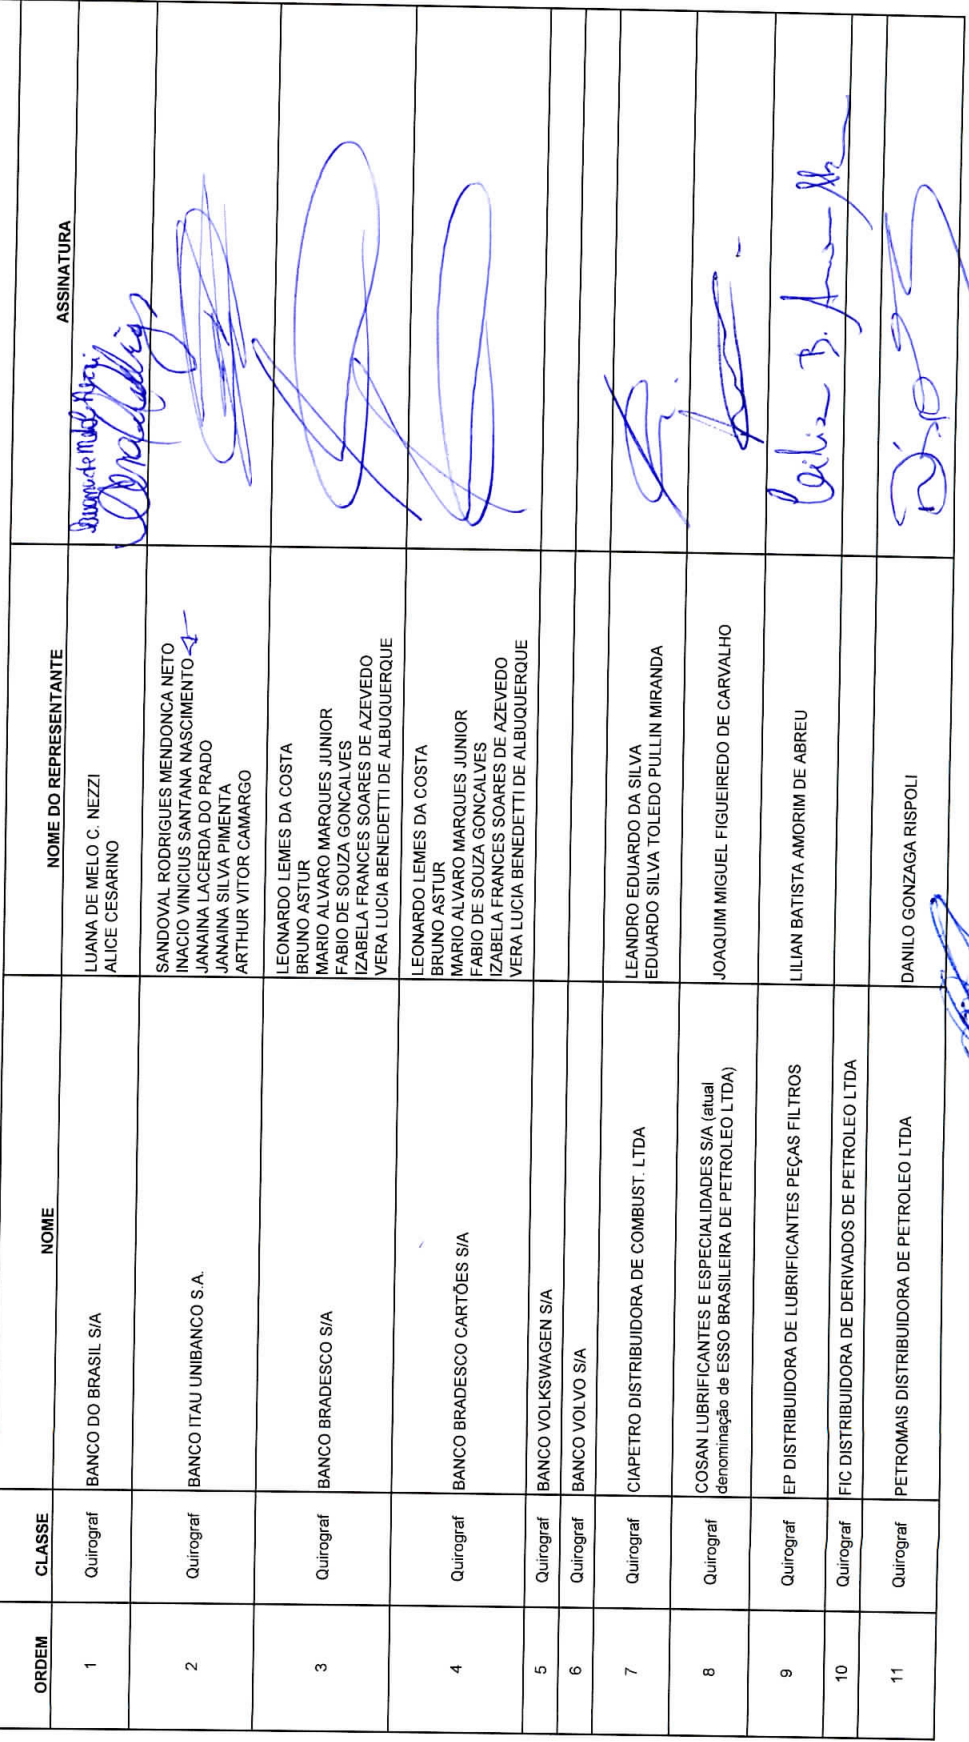 ORDEM CLASSE NOME NOME DO REPRESENTANTE ASSINATURA
1 Quirograf BANCO DO BRASIL S/A LUANA DE MELO C. NEZZI
ALICE CESARINO
2 Quirograf BANCO ITAU UNIBANCO S.A. SANDOVAL RODRIGUES MENDONCA NETO
INACIO VINICIUS SANTANA NASCIMENTO
JANAINA LACERDA DO PRADO
JANAINA SILVA PIMENTA
ARTHUR VITOR CAMARGO
3 Quirograf BANCO BRADESCO S/A LEONARDO LEMES DA COSTA
BRUNO ASTUR
MARIO ALVARO MARQUES JUNIOR
FABIO DE SOUZA GONCALVES
IZABELA FRANCES SOARES DE AZEVEDO
VERA LUCIA BENEDETTI DE ALBUQUERQUE
4 Quirograf BANCO BRADESCO CARTÕES S/A LEONARDO LEMES DA COSTA
BRUNO ASTUR
MARIO ALVARO MARQUES JUNIOR
FABIO DE SOUZA GONCALVES
IZABELA FRANCES SOARES DE AZEVEDO
VERA LUCIA BENEDETTI DE ALBUQUERQUE
5 Quirograf BANCO VOLKSWAGEN S/A
6 Quirograf BANCO VOLVO S/A
7 Quirograf CIAPETRO DISTRIBUIDORA DE COMBUST. LTDA LEANDRO EDUARDO DA SILVA
EDUARDO SILVA TOLEDO PULLIN MIRANDA
8 Quirograf COSAN LUBRIFICANTES E ESPECIALIDADES S/A (atual
denominação de ESSO BRASILEIRA DE PETROLEO LTDA) JOAQUIM MIGUEL FIGUEIREDO DE CARVALHO
9 Quirograf EP DISTRIBUIDORA DE LUBRIFICANTES PEÇAS FILTROS LILIAN BATISTA AMORIM DE ABREU
10 Quirograf FIC DISTRIBUIDORA DE DERIVADOS DE PETROLEO LTDA
11 Quirograf PETROMAIS DISTRIBUIDORA DE PETROLEO LTDA DANILO GONZAGA RISPOLI